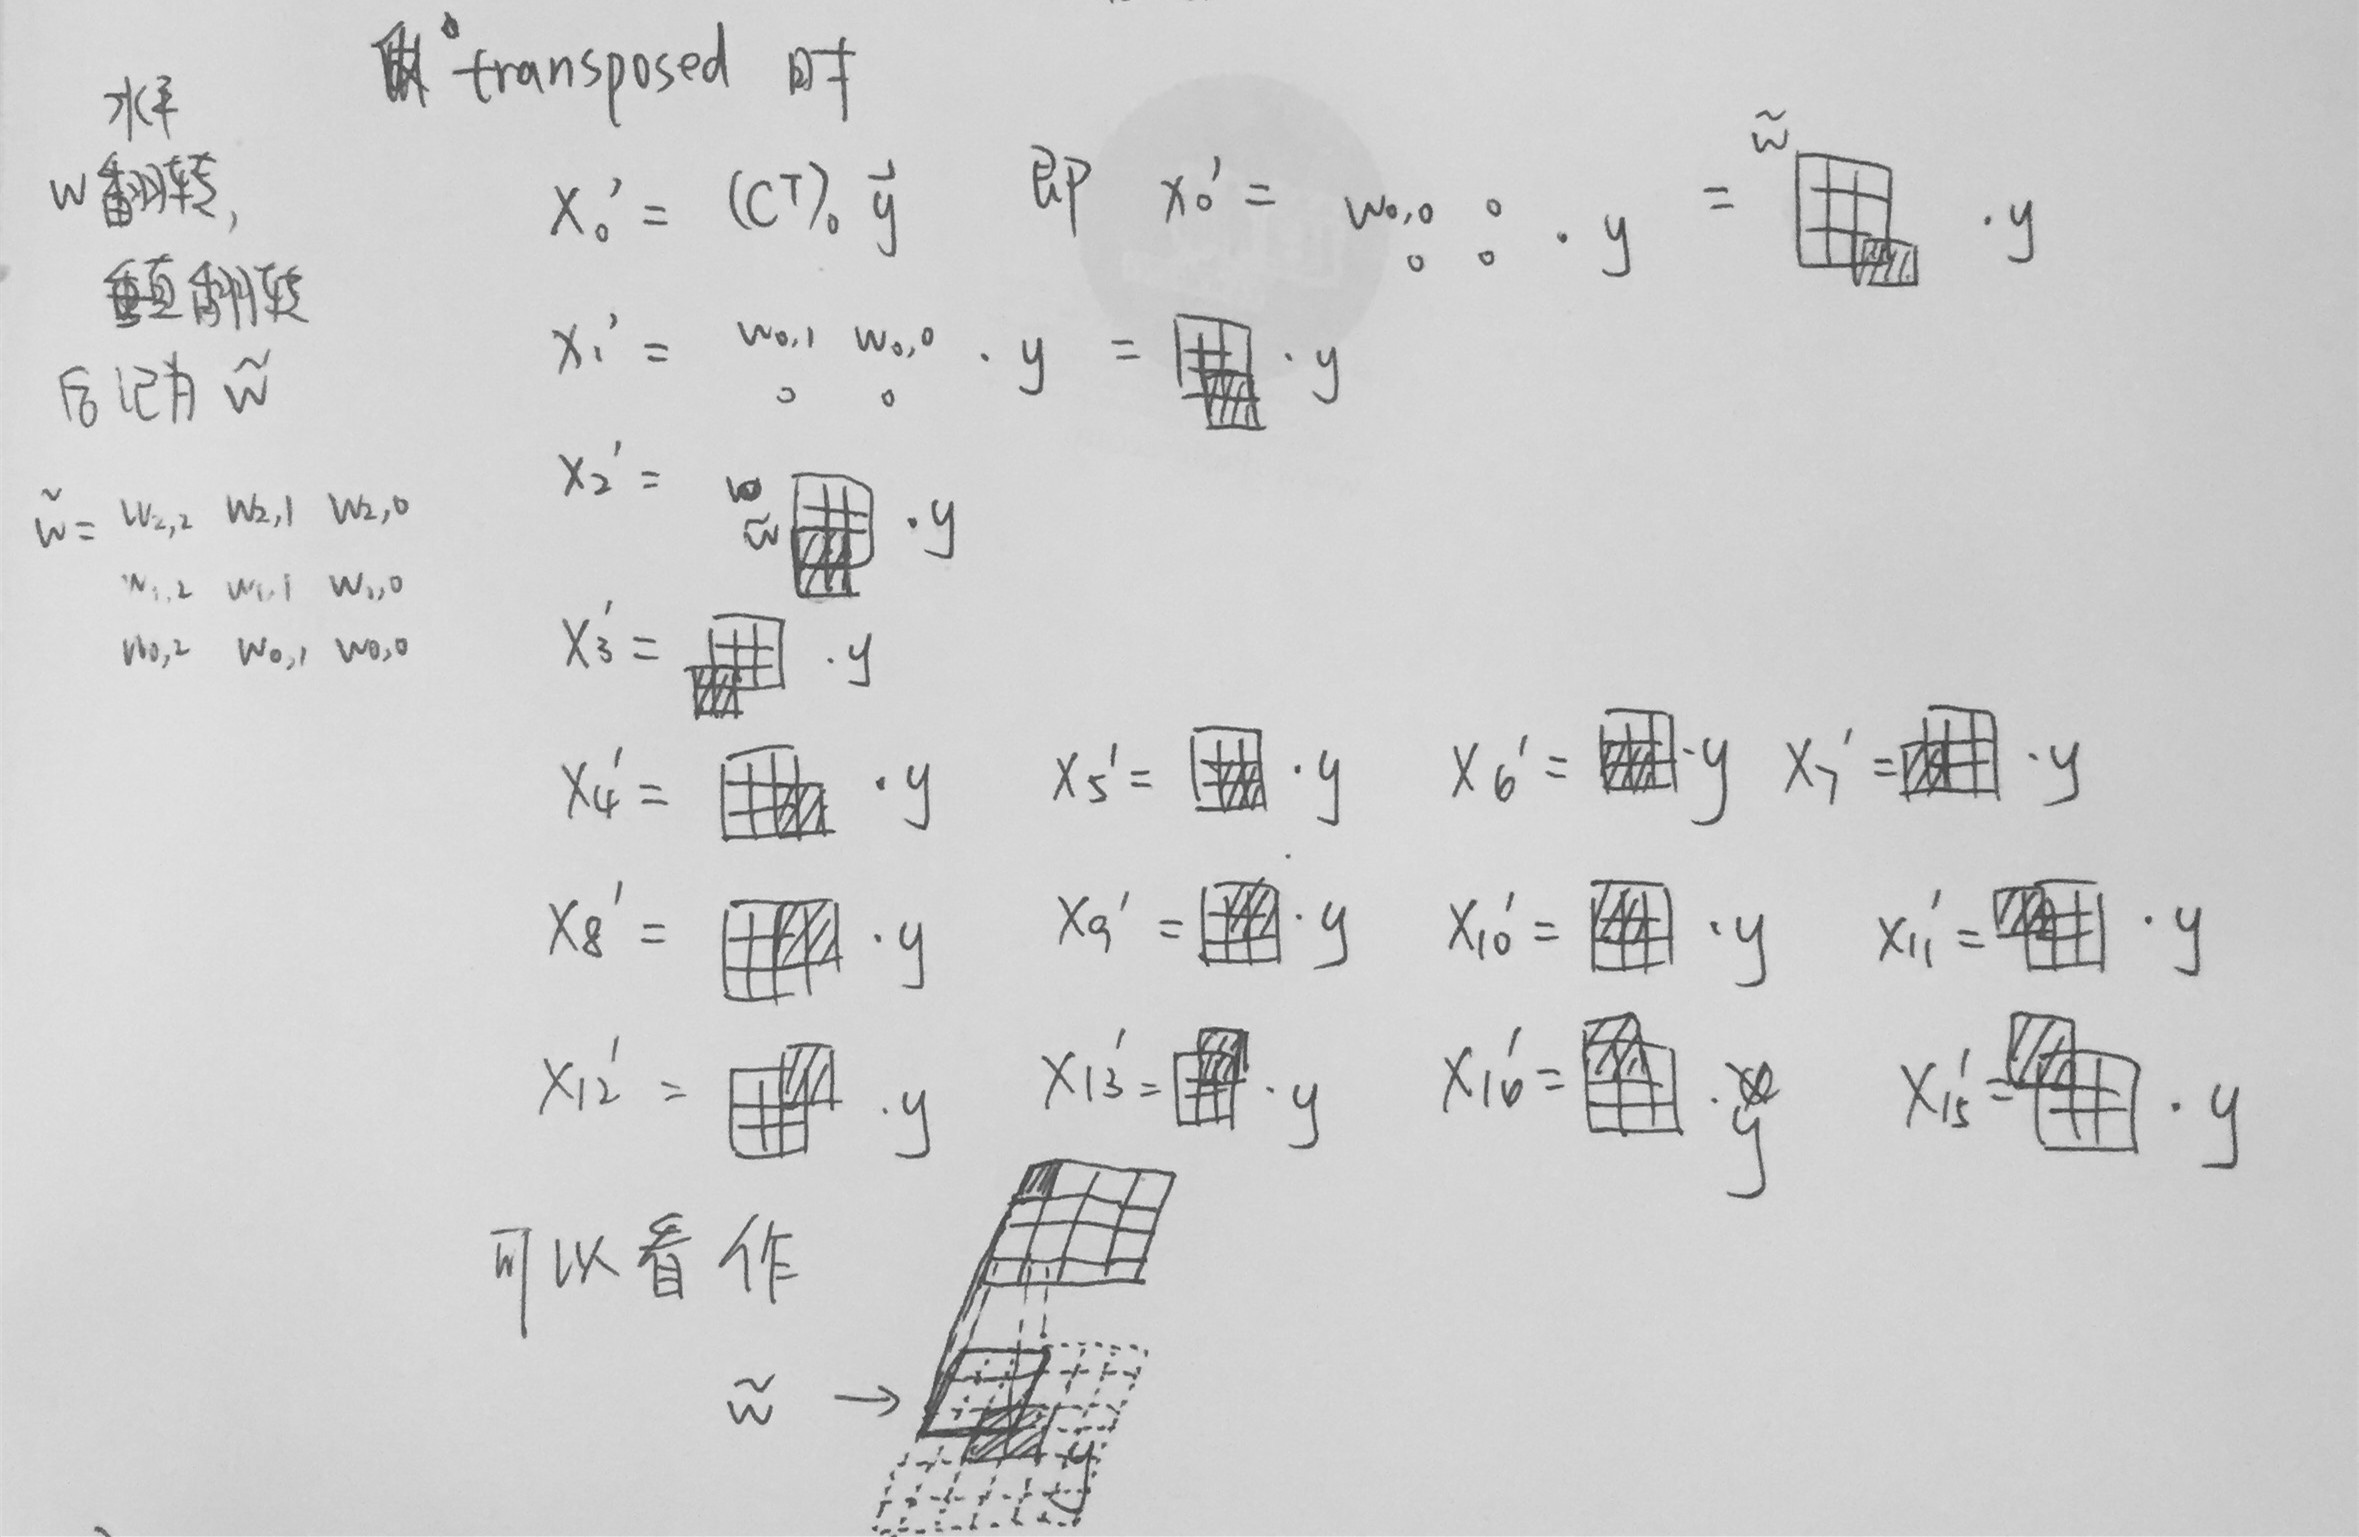 transposed 时
水平
w 翻转,
垂直翻转
后记为 w̃
w̃ = w2,2 w2,1 w2,0
w1,2 w1,1 w1,0
w0,2 w0,1 w0,0
X0' = (C^T)0 y⃗ 即 x0' = w0,0 0 · y = w̃ · y
0 0
X1' = w0,1 w0,0 · y = · y
0 0
X2' = w̃ · y
X3' = · y
X4' = · y X5' = · y X6' = · y X7' = · y
X8' = · y X9' = · y X10' = · y X11' = · y
X12' = · y X13' = · y X16' = · y X15' = · y
可以看作
w̃ →
y